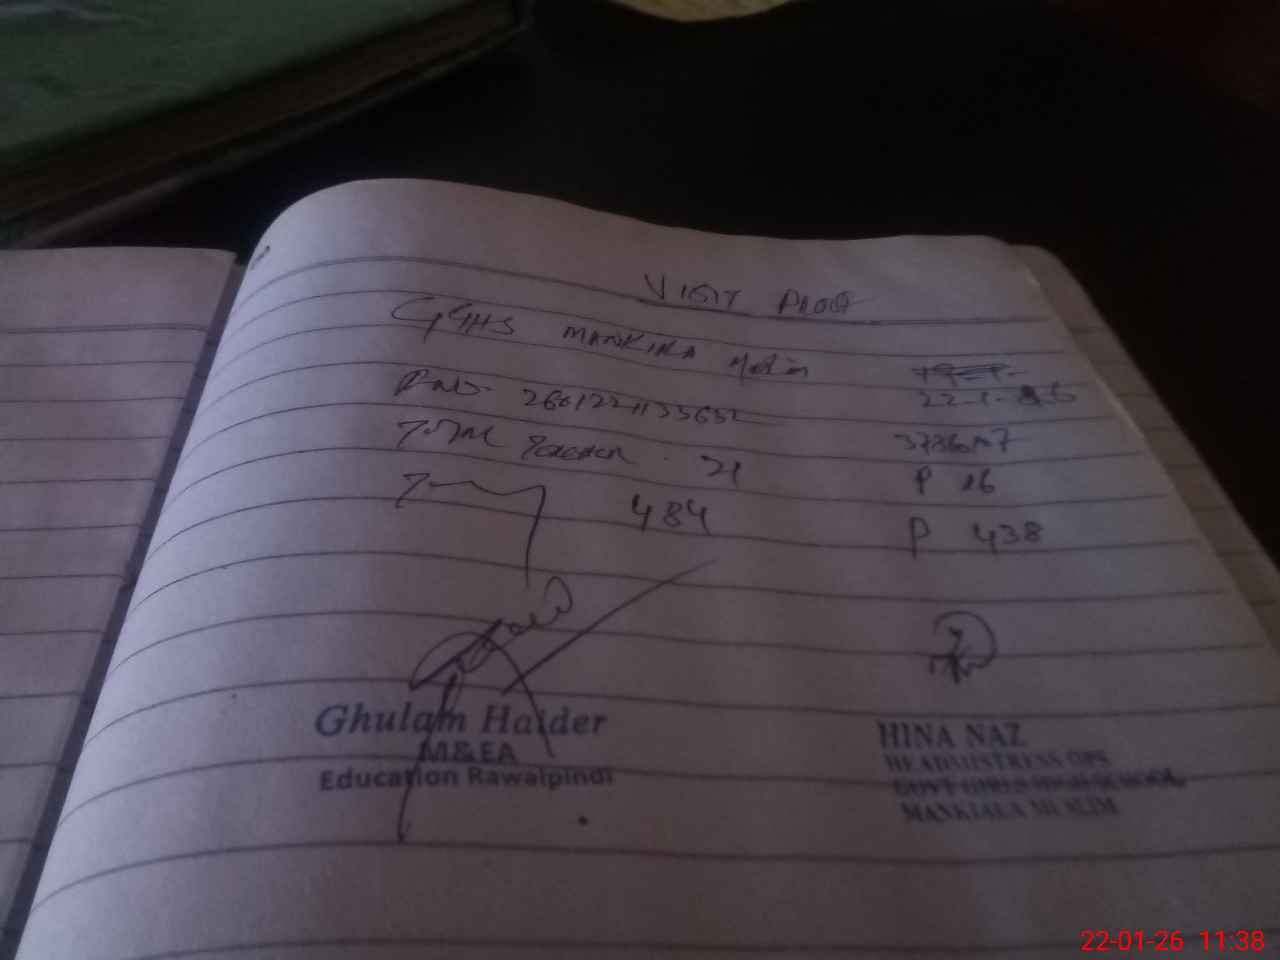 VISIT PROOF
GGHS MANKIALA Muslim
22-1-26
R.No. 260122113365
Total Teacher 21 P 16
484 P 438
Ghulam Haider
M&EA
Education Rawalpindi
HINA NAZ
HEADMISTRESS OPS
GOVT GIRLS HIGH SCHOOL
MANKIALA MUSLIM
22-01-26 11:38